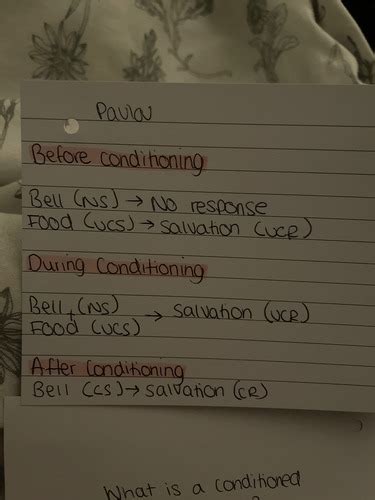 Pavlov
Before conditioning
Bell (NS) → No response
Food (UCS) → Salvation (UCR)
During Conditioning
Bell + (NS)
Food (UCS) → Salvation (UCR)
After Conditioning
Bell (CS) → Salvation (CR)
What is a conditioned